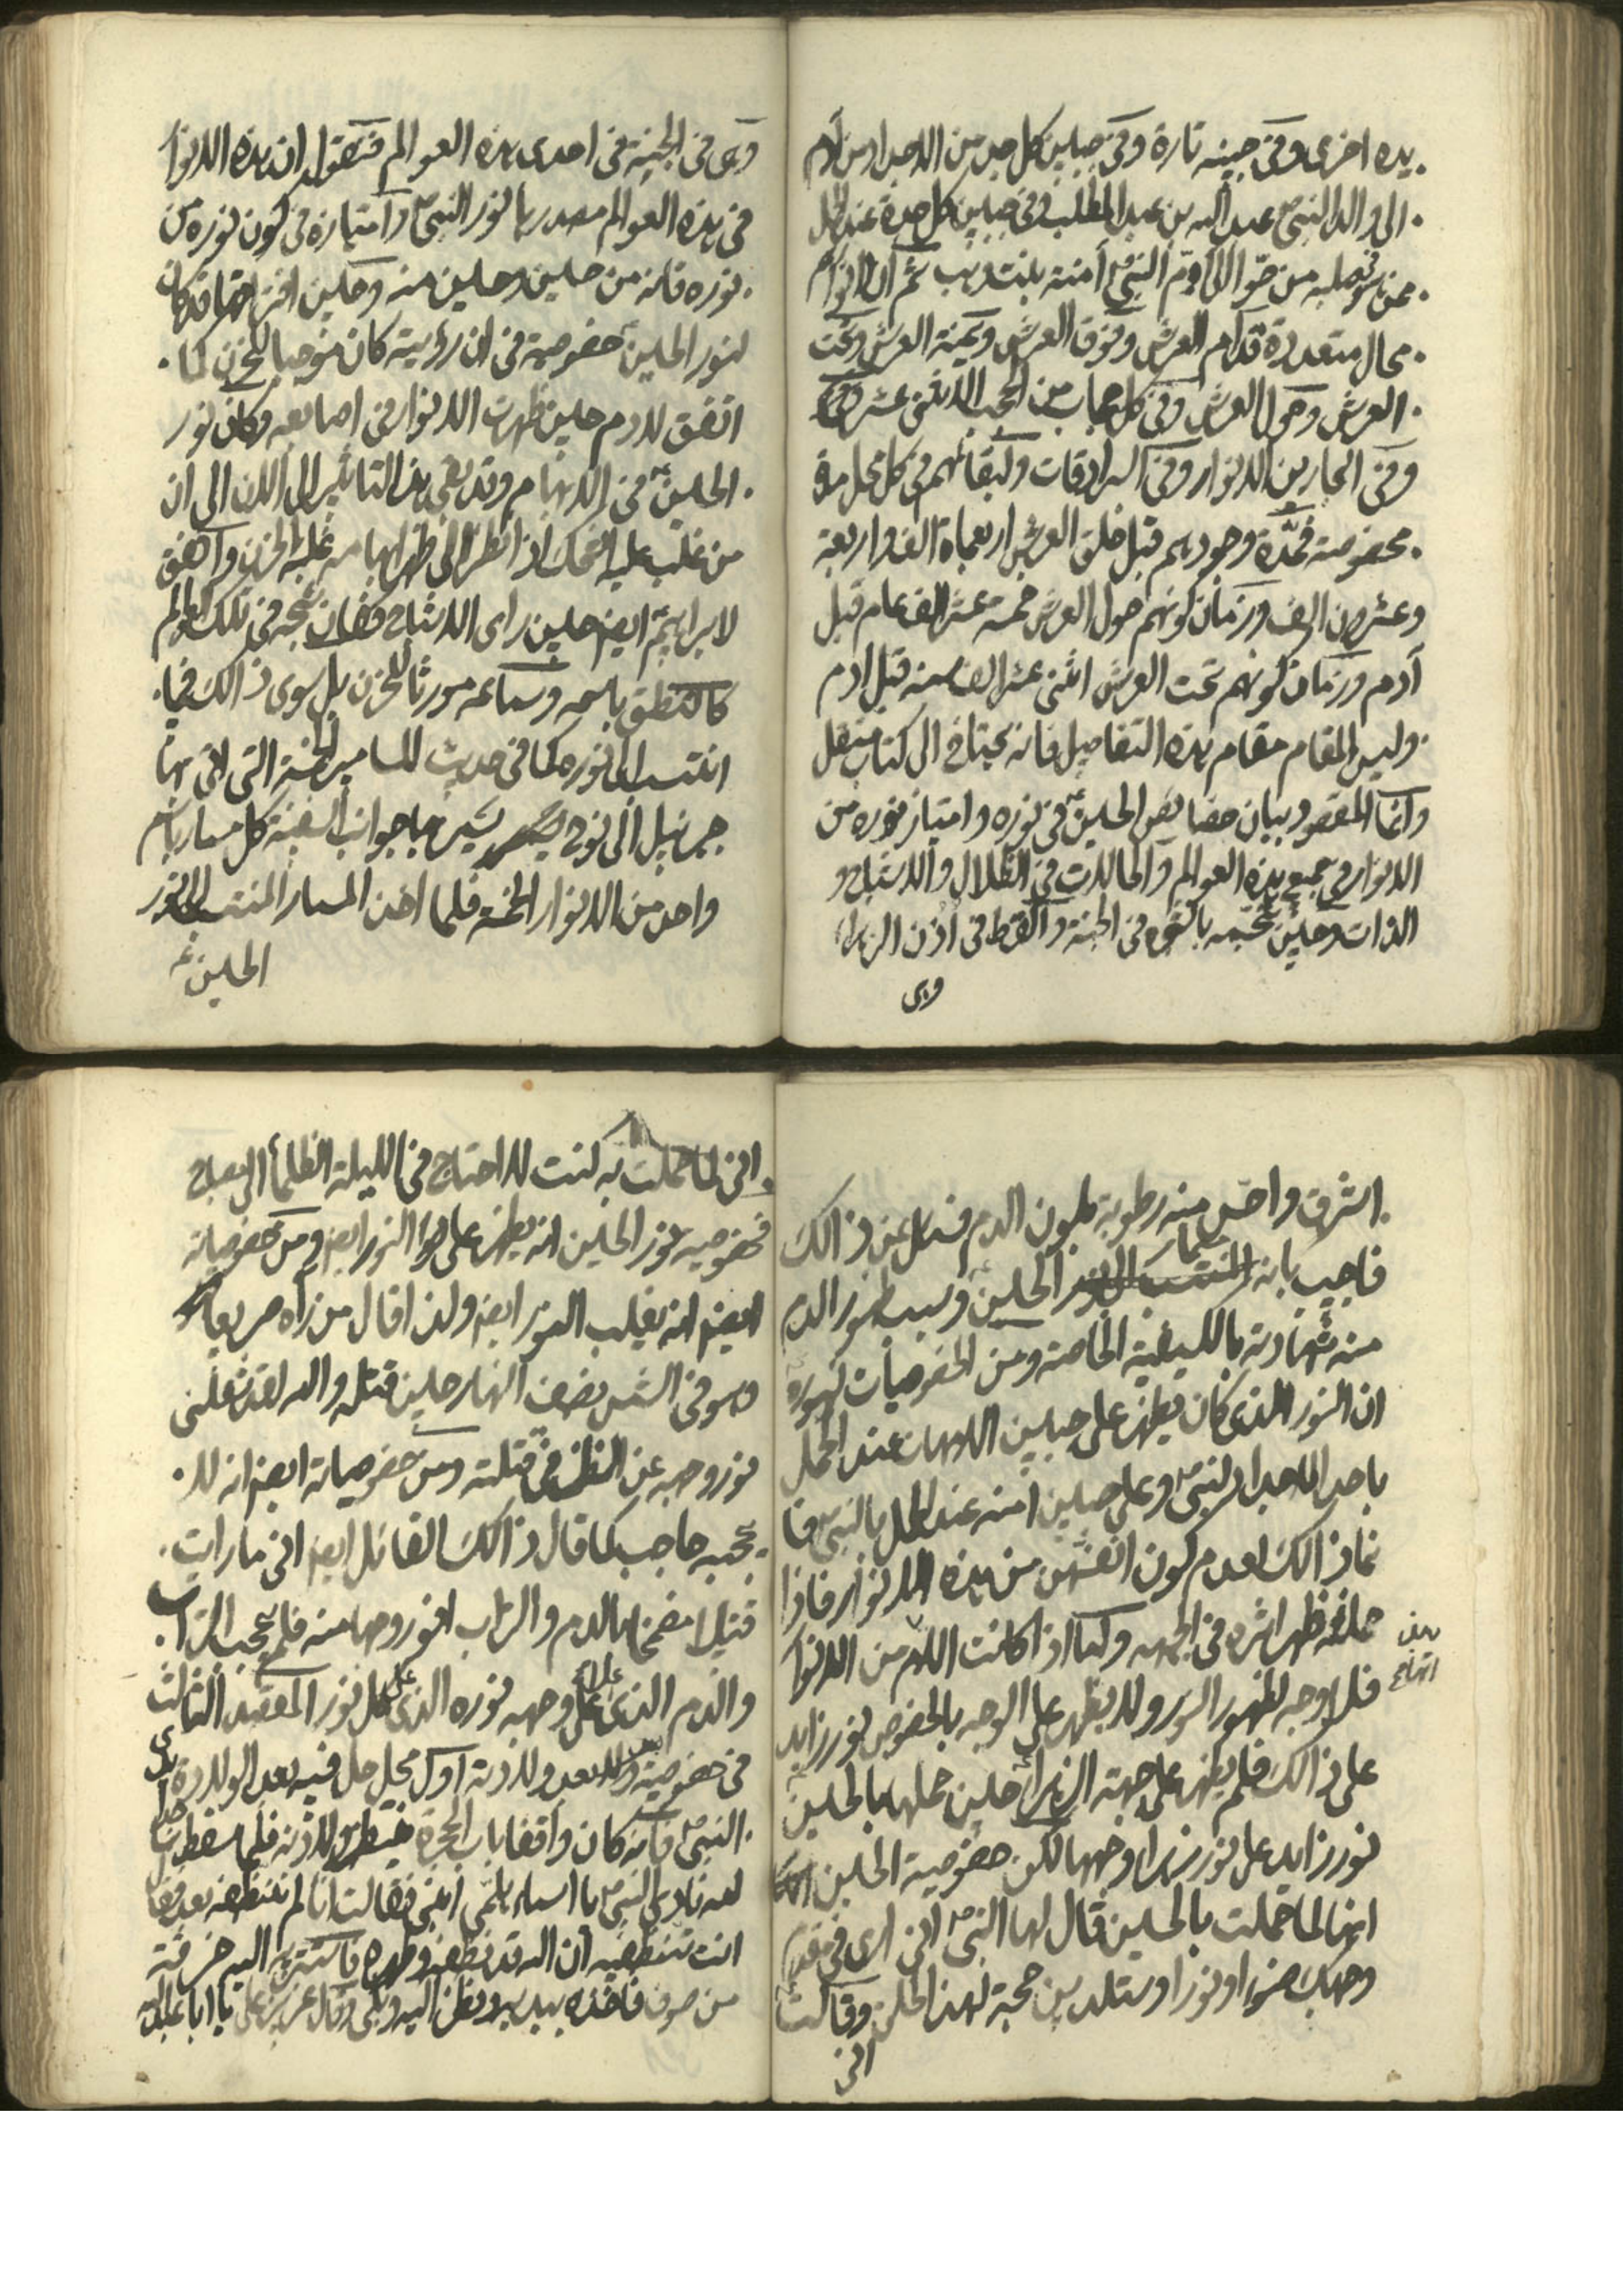 يده اخرى وفى جبينه تارة وفى جبين كل جد من الاجداد من آدم
الى والد النبى ص عبد الله بن عبد المطلب وفى جبين كل جدة عند الحمل
ممن فى صلبه من حوا الى ام النبى ص آمنة بنت وهب ثم ان لانوارهم
محال متعددة قدام العرش وفوق العرش ويمنة العرش وتحت
العرش وحول العرش وفى كل حجاب من الحجب الاثنى عشر
وفى البحار من الانوار وفى السرادقات ولبقائهم فى كل محل مدة
مخصوصة فمدة وجودهم قبل خلق العرش اربعماة الف واربعة
وعشرون الف وزمان كونهم حول العرش خمسة عشر الف عام قبل
آدم وزمان كونهم تحت العرش اثنى عشر الف سنة قبل ادم
وليس المقام مقام هذه التفاصيل فانه يحتاج الى كتاب مستقل
وانما المقصود بيان خصايص الحسين ع فى نوره وامتياز نوره من
الانوار فى جميع هذه العوالم والحالات فى الظلال والاشباح و
الذرات وحين تجسمه بالشجرة فى الجنة والقرط فى اذن الزهراء
وهى
وهى فى الجنة فى احدى هذه العوالم فنقول ان هذه الانوار
فى هذه العوالم مصدرها نور النبى ص وامتيازه فى كون نوره من
نوره فانه من حسين وحسين منه وحين افتراقهما قد كان
لنور الحسين ع خصوصية فى ان رؤيته كان موجبا للحزن كما
اتفق لادم حين ظهرت الانوار فى اصابعه وكان نور
الحسين ع فى الابهام وقد بقى هذا التاثير الى الان الى ان
من غلب عليه الضحك اذا نظر الى ظهر ابهامه غلبه الحزن واتفق
لابراهيم ايضا حين راى الاشباح فكان شبحه فى تلك العوالم
كالنطق باسمه وسماعه مورثا للحزن بل سوى ذالك فيما
انتسب الى نوره كما فى حديث المسامير الخمسة التى اتى بها
جبرئيل الى نوح ليسمر بها جوانب السفينة كل مسمار باسم
واحد من الانوار الخمسة فلما اخذ المسمار المنتسب الى نور
الحسين ع
اشرق واحس منه رطوبة بلون الدم فسئل عن ذالك
فاجيب بانه مسمار الحسين ع وسبب ظهور الدم
منه شهادته بالكيفية الخاصة ومن الخصوصيات لنوره
ان النور الذى كان يظهر على جبين الامهات عند الحمل
باحد الاجداد للنبى ص وعلى جبين آمنه عند الحمل بالنبى ص فا
نما ذالك لعدم كون انفسهن من هذه الانوار فاذا
حملنه ظهر اثره فى الجبهه وكما اذا كانت الام من الانوار
فلا وجه لظهور النور ولا يظهر على الوجه بالخصوص نور زايد
على ذالك فلم يظهر على جبهة الزهراء حين حملها بالحسن ع
نور زايد على نور زهراء وجهها لكن خصوصية الحسين
انها لما حملت بالحسين قال لها النبى ص انى ارى فى مقدم
وجهك ضوءا ونورا وستلدين حجة لهذا الخلق وقالت
انى
انى لما حملت به كنت لا احتاج فى الليلة الظلماء الى مصباح
فخصوصيه نور الحسين انه يظهر على النور ايضا ومن خصوصياته
ايضا انه يغلب النور ايضا ولذا قال من راه صريعا
وهو فى الشمس نصف النهار حين قتله والله لقد شغلنى
نور وجهه عن الفكر فى قتلته ومن خصوصياته ايضا انه لا
يحجبه حاجب كما قال ذالك القائل ايضا انى ما رايت
قتيلا مضمخا بالدم والتراب انور وجها منه فلم يحجب التراب
والدم الذى على وجهه نوره الذى على كل نور المقصد الثالث
فى خصوصيته بعد ولادته اول محل حل فيه بعد الولادة يدى
النبى ص فانه كان واقفا بباب الحجرة ينتظر ولادته فلما سقط ساجدا
لله نادى النبى ص يا اسماء هلمى ابنى فقالت انا لم ننظفه بعد فقال
انت تنظفيه ان الله قد نظفه وطهره فاتت به اليه فى خرقة
من صوف فاخذه بيديه ونظر اليه وبكى وقال عزيز على يا ابا عبد الله